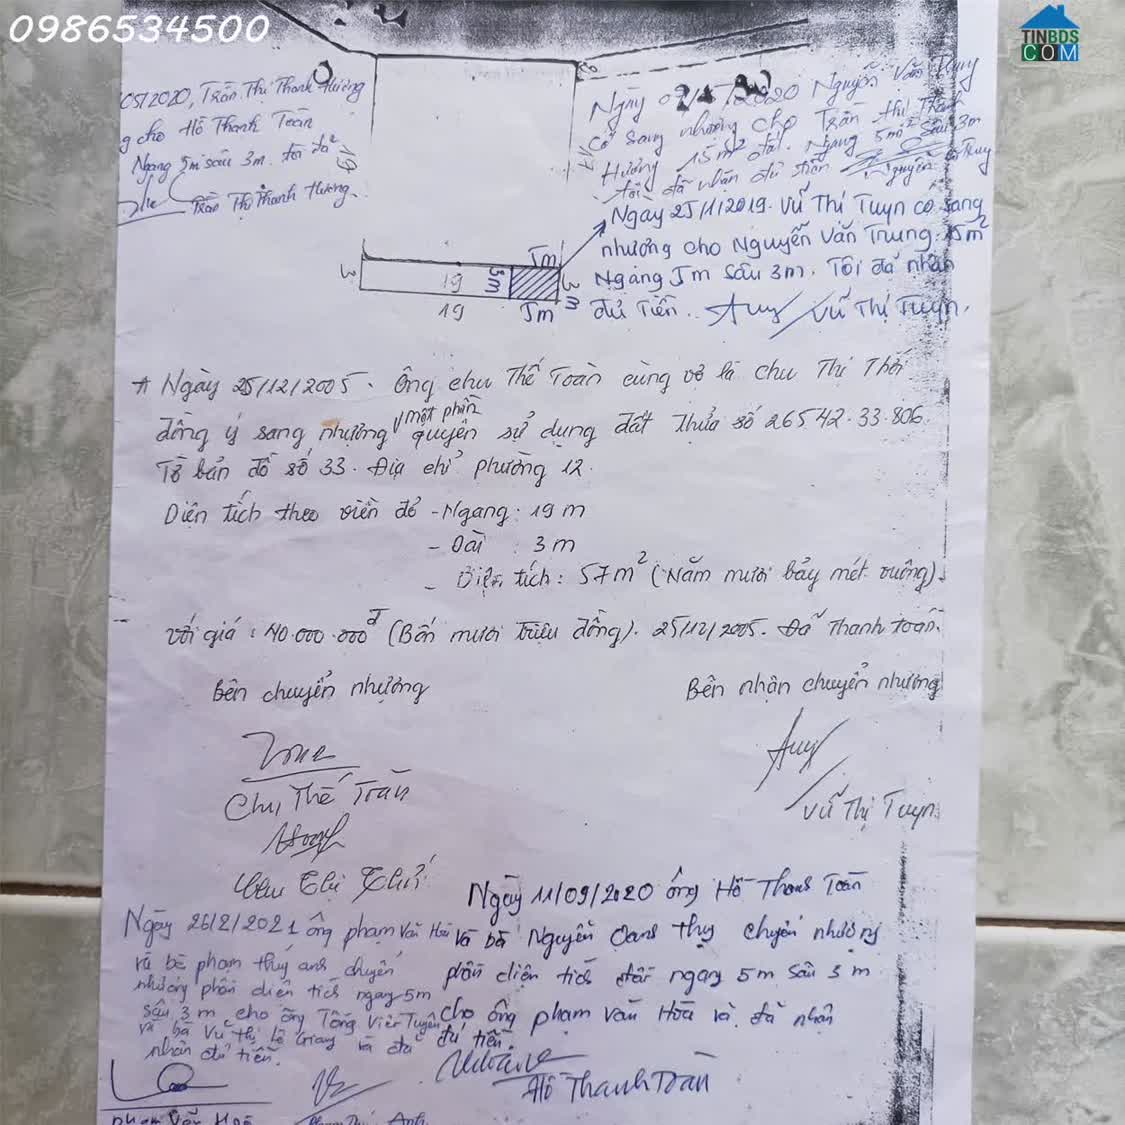 0986534500
TINBDS
COM
05/2020, Trần Thị Thanh Hương
g cho Hồ Thanh Toàn
Ngang 5m sâu 3m. tôi đã
Trần Thị Thanh Hương.
19
17
Ngày /2020 Nguyễn Văn Trung
Có sang nhượng cho Trần Thị Thanh
Hương 15m² đất. Ngang 5m sâu 3m
tôi đã nhận đủ tiền Nguyễn Trung
Ngày 25/11/2019. Vũ Thị Tuyn có sang
nhương cho Nguyễn Văn Trung. 15m²
Ngang 5m sâu 3m. Tôi đã nhận
đủ Tiền. Vũ Thị Tuyn.
3 19 3m 5m 3m
19 5m
* Ngày 25/12/2005. Ông chu Thế Toàn cùng vợ là chu Thị Thới
đồng ý sang nhương một phần quyền sử dụng đất thửa số 26542.33.806.
Tờ bản đồ số 33. Địa chỉ phường 12.
Diện tích theo viền đỏ - Ngang: 19 m
- Dài : 3 m
- Diện tích: 57m² (Năm mươi bảy mét vuông).
với giá: 40.000.000đ (Bốn mươi triệu đồng). 25/12/2005. Đã Thanh toán.
Bên chuyển nhượng
Bên nhận chuyển nhương
Chu Thế Toàn
Vũ Thị Tuyn
Chu Thị
Ngày 11/09/2020 ông Hồ Thanh Toàn
và bà Nguyễn Oanh Thụy chuyển nhượng
phần diện tích đất ngang 5m sâu 3m
cho ông phạm văn Hoà và đã nhận
đủ tiền.
Hồ Thanh Toàn
Ngày 26/2/2021 ông phạm Văn Hoà
và bà phạm thuý anh chuyển
nhương phần diện tích ngang 5m
sâu 3m cho ông Tống Viết Tuyên
và bà Vũ thị lệ giang và đã
nhận đủ tiền.
phạm Văn Hoà
phạm Thuý Anh